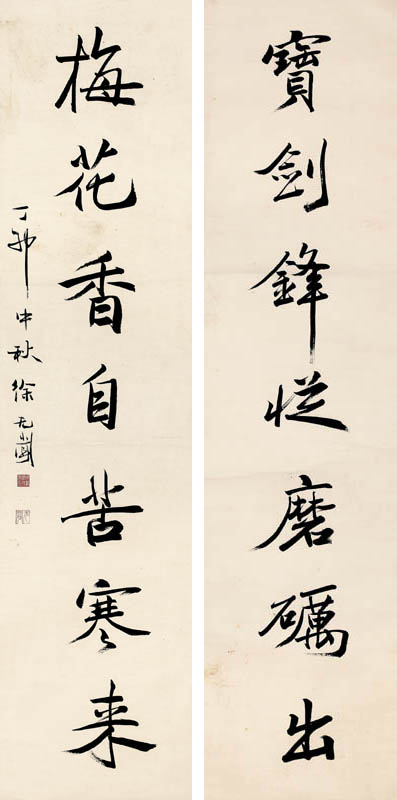 寶劍鋒從磨礪出
梅花香自苦寒来
丁卯中秋徐无聞